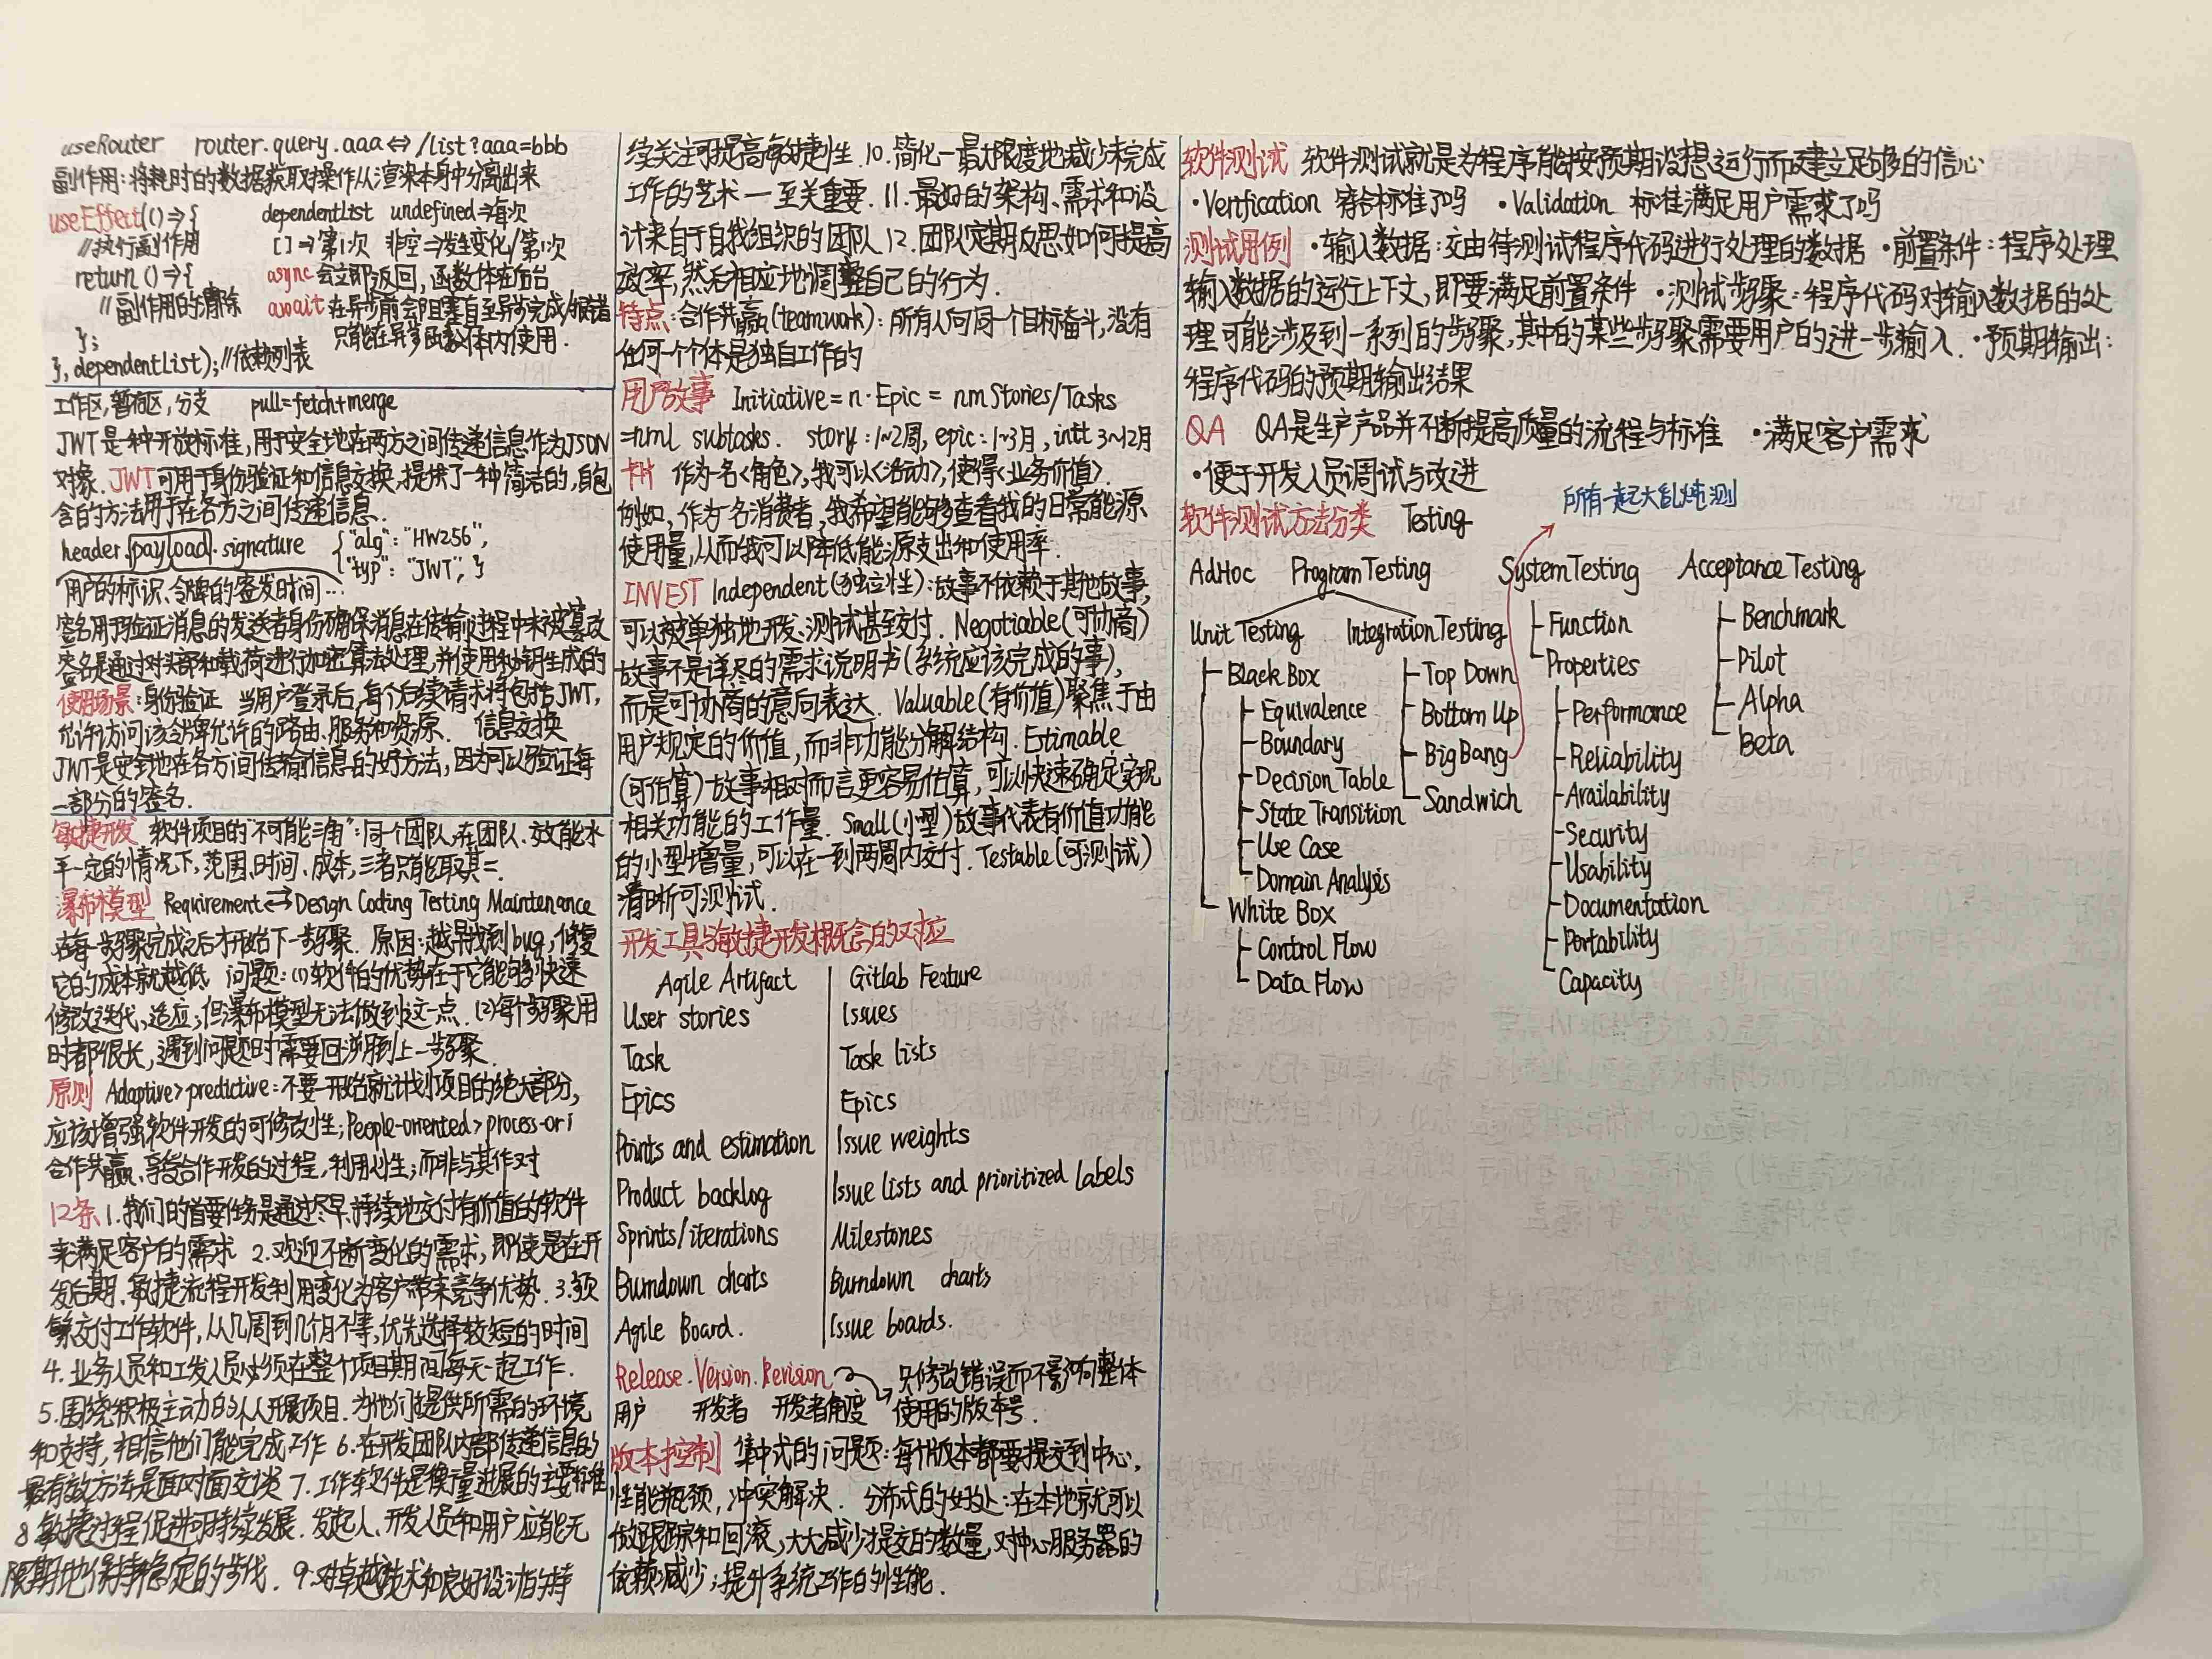 useRouter router.query.aaa⇔/list?aaa=bbb
副作用:将耗时的数据获取操作从渲染本身中分离出来
useEffect(()=>{ dependentList undefined⇒每次
//执行副作用 []⇒第1次 非空⇒发生变化/第1次
return ()=>{ async会立即返回,函数体在后台
//副作用的清除 await在异步前会阻塞直至异步完成/报错
}; 只能在异步函数体内使用.
}, dependentList); //依赖列表
工作区,暂存区,分支 pull=fetch+merge
JWT是一种开放标准,用于安全地在两方之间传递信息作为JSON
对象.JWT可用于身份验证和信息交换,提供了一种简洁的,自包
含的方法用于在各方之间传递信息.
header.payload.signature {"alg":"HW256",
"typ":"JWT",}
用户的标识、令牌的签发时间…
签名用于验证消息的发送者身份确保消息在传输过程中未被篡改
签名是通过对头部和载荷进行加密算法处理,并使用秘钥生成的
使用场景:身份验证 当用户登录后,每个后续请求将包括JWT,
允许访问该令牌允许的路由、服务和资源. 信息交换
JWT是安全地在各方间传输信息的好方法,因为可以验证每
一部分的签名.
敏捷开发 软件项目的"不可能三角":同一个团队,在团队、效能水
平一定的情况下,范围、时间、成本,三者只能取其二.
瀑布模型 Requirement⇄Design Coding Testing Maintenance
在每一步骤完成之后才开始下一步骤. 原因:越早找到bug,修复
它的成本就越低 问题:(1)软件的优势在于它能够快速
修改迭代、适应;但瀑布模型无法做到这一点. (2)每个步骤用
时都很长,遇到问题时需要回溯到上一步骤.
原则 Adaptive>predictive:不要一开始就计划项目的绝大部分,
应该增强软件开发的可修改性;People-oriented>process-ori
合作共赢,享受合作开发的过程,利用人性;而非与其作对
12条 1.我们的首要任务是通过尽早、持续地交付有价值的软件
来满足客户的需求 2.欢迎不断变化的需求,即使是在开
发后期.敏捷流程开发利用变化为客户带来竞争优势. 3.频
繁交付工作软件,从几周到几个月不等,优先选择较短的时间
4.业务人员和开发人员必须在整个项目期间每天一起工作.
5.围绕积极主动的人开展项目.为他们提供所需的环境
和支持,相信他们能完成工作 6.在开发团队内部传递信息的
最有效方法是面对面交谈 7.工作软件是衡量进展的主要标准
8.敏捷过程促进可持续发展.发起人、开发人员和用户应能无
限期地保持稳定的步伐. 9.对卓越技术和良好设计的持
续关注可提高敏捷性.10.简化—最大限度地减少未完成
工作的艺术—至关重要.11.最好的架构、需求和设
计来自于自我组织的团队 12.团队定期反思如何提高
效率,然后相应地调整自己的行为.
特点:合作共赢(teamwork):所有人向同一个目标奋斗,没有
任何一个个体是独自工作的
用户故事 Initiative=n·Epic=nmStories/Tasks
=nml subtasks. story:1~2周,epic:1~3月,intt 3~12月
卡片 作为一名<角色>,我可以<活动>,使得<业务价值>.
例如,作为一名消费者,我希望能够查看我的日常能源
使用量,从而我可以降低能源支出和使用率.
INVEST Independent(独立性):故事不依赖于其他故事,
可以被单独地开发、测试甚至交付. Negotiable(可协商)
故事不是详尽的需求说明书(系统应该完成的事),
而是可协商的意向表达. Valuable(有价值)聚焦于由
用户规定的价值,而非功能分解结构. Estimable
(可估算)故事相对而言更容易估算,可以快速确定实现
相关功能的工作量. Small(小型)故事代表有价值功能
的小型增量,可以在一到两周内交付. Testable(可测试)
清晰可测试.
开发工具与敏捷开发概念的对应
Agile Artifact Gitlab Feature
User stories Issues
Task Task lists
Epics Epics
Points and estimation Issue weights
Product backlog Issue lists and prioritized labels
Sprints/iterations Milestones
Burndown charts Burndown charts
Agile Board. Issue boards.
Release.Version.Revision 只修改错误而不影响整体
用户 开发者 开发者角度 使用的版本号.
版本控制 集中式的问题:每个版本都要提交到中心,
性能瓶颈,冲突解决. 分布式的好处:在本地就可以
做跟踪和回滚,大大减少提交的数量,对中心服务器的
依赖减少;提升系统工作的性能.
软件测试 软件测试就是为程序能按预期设想运行而建立足够的信心
·Verification 符合标准了吗 ·Validation 标准满足用户需求了吗
测试用例 ·输入数据:交由待测试程序代码进行处理的数据 ·前置条件:程序处理
输入数据的运行上下文,即要满足前置条件 ·测试步骤:程序代码对输入数据的处
理可能涉及到一系列的步骤,其中的某些步骤需要用户的进一步输入. ·预期输出:
程序代码的预期输出结果
QA QA是生产产品并不断提高质量的流程与标准 ·满足客户需求
·便于开发人员调试与改进
所有一起大乱炖测
软件测试方法分类 Testing
AdHoc Program Testing System Testing Acceptance Testing
Unit Testing Integration Testing
Black Box
Equivalence
Boundary
Decision Table
State Transition
Use Case
Domain Analysis
White Box
Control Flow
Data Flow
Top Down
Bottom Up
Big Bang
Sandwich
Function
Properties
Performance
Reliability
Availability
Security
Usability
Documentation
Portability
Capacity
Benchmark
Pilot
Alpha
Beta